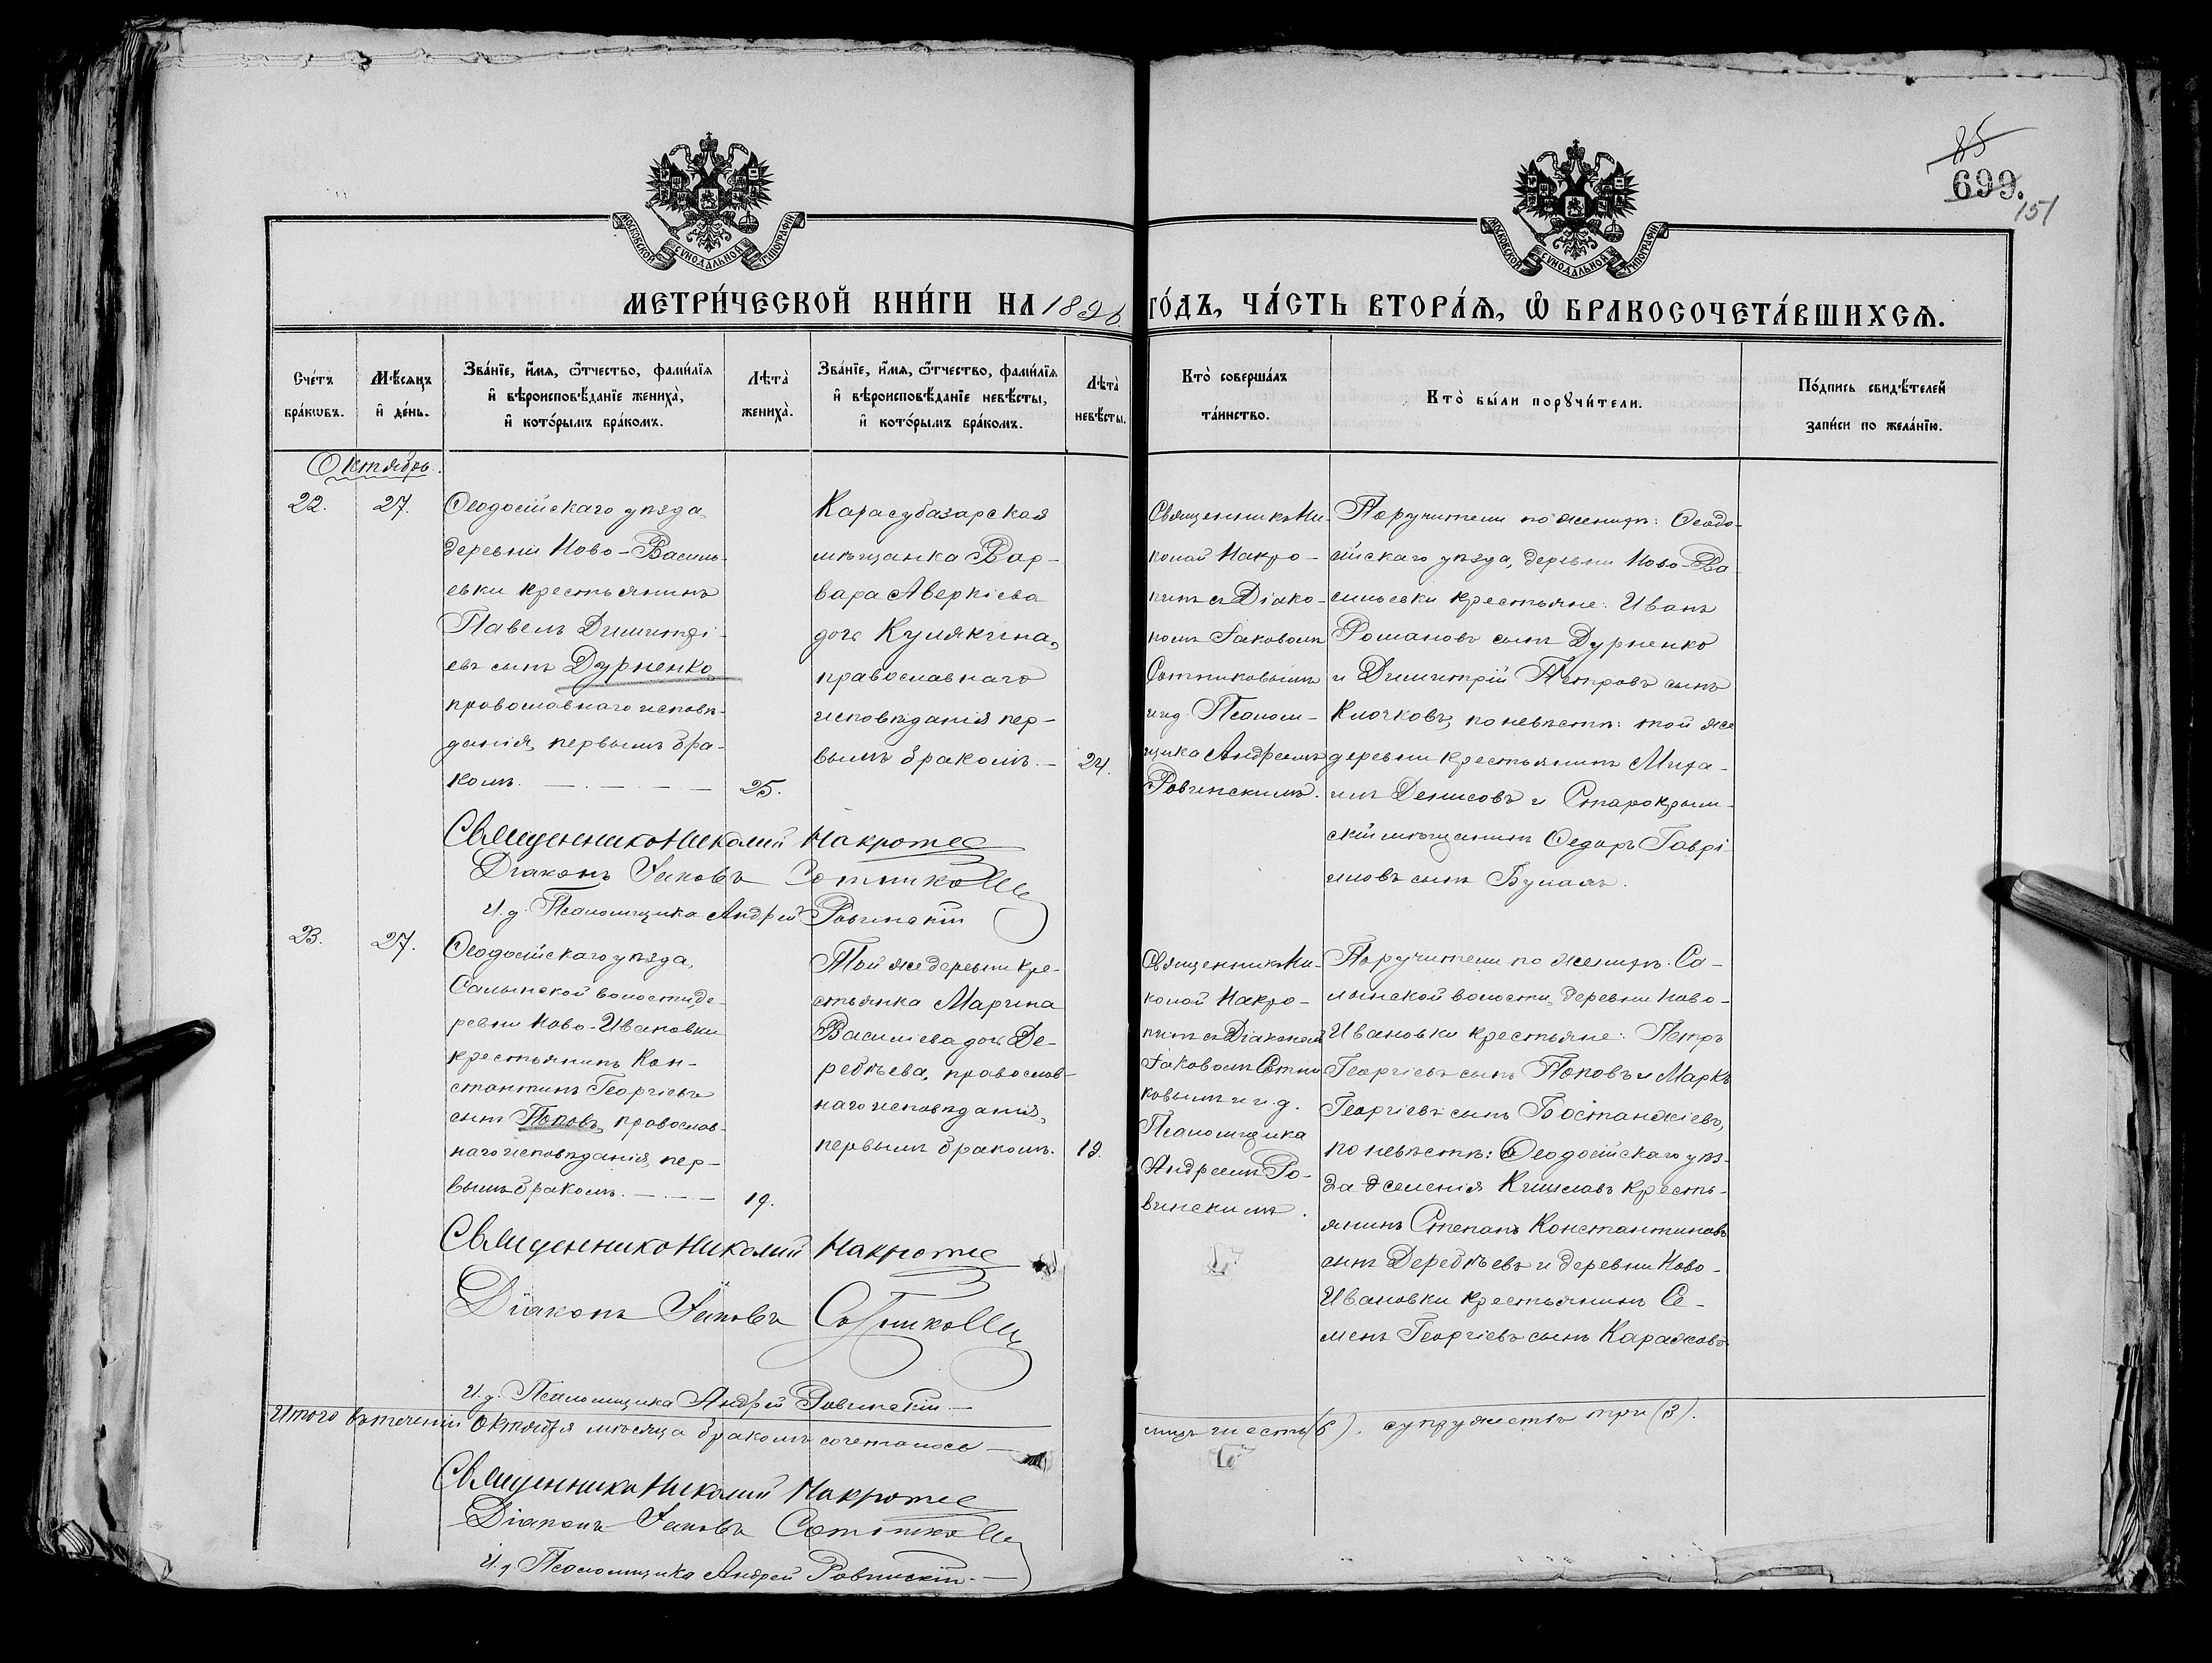 85
699.
151
МОСКОВСКОЙ СУНОДАЛЬНОЙ ТИПОГРАФІИ
МОСКОВСКОЙ СУНОДАЛЬНОЙ ТИПОГРАФІИ
МЕТРИ́ЧЕСКОЙ КНИ́ГИ НА 1896. ГО́ДЪ, ЧА́СТЬ ВТОРА́Я, Ѡ БРАКОСОЧЕТА́ВШИХСЯ.
Сче́тъ
бра́кѡвъ.
Мѣ́сяцъ
и де́нь.
Зва́нїе, и́мя, ѻ́тчество, фами́лїя
и вѣроисповѣ́данїе жениха̀,
и кото́рымъ бра́комъ.
Лѣта̀
жениха̀.
Зва́нїе, и́мя, ѻ́тчество, фами́лїя
и вѣроисповѣ́данїе невѣ́сты,
и кото́рымъ бра́комъ.
Лѣта̀
невѣ́сты.
Кто̀ соверша́лъ
та́инство.
Кто̀ бы́ли порꙋчи́тели.
По́дпись свидѣ́телей
за́писи по жела́нїю.
Октябрь.
22.
27.
Ѳеодосійскаго уѣзда,
деревни Ново-Василь-
евки крестьянинъ
Павелъ Димитрі-
евъ сынъ Дурненко,
православнаго исповѣ-
данія, первымъ бра-
комъ.
25.
Карасубазарская
мѣщанка Вар-
вара Аверкіева
дочь Кулякина,
православнаго
исповѣданія пер-
вымъ бракомъ.
24.
Священникъ Ни-
колай Макро-
питъ съ Діако-
номъ Іаковомъ
Сотниковымъ
и и.д. Псалом-
щика Андреемъ
Ровинскимъ.
Поручители по женихѣ: Ѳеодо-
сійскаго уѣзда, деревни Ново-Ва-
сильевки крестьяне: Иванъ
Романовъ сынъ Дурненко
и Димитрій Петровъ сынъ
Клочковъ, по невѣстѣ: той же
деревни крестьянинъ Миха-
илъ Денисовъ и Старокрым-
скій мѣщанинъ Ѳедоръ Гаврі-
иловъ сынъ
Священникъ Николай
Діаконъ Іаковъ Сотниковъ
И.д. Псаломщика Андрей Ровинскій
23.
27.
Ѳеодосійскаго уѣзда,
Салынской волости, де-
ревни Ново-Ивановки
крестьянинъ Кон-
стантинъ Георгіевъ
сынъ Поповъ, православ-
наго исповѣданія, пер-
вымъ бракомъ.
19.
Той же деревни кре-
стьянка Марина
Василіева дочь Де-
ребѣева, православ-
наго исповѣданія,
первымъ бракомъ.
19.
Священникъ Ни-
колай Макро-
питъ съ Діакономъ
Іаковомъ Сотни-
ковымъ и и.д.
Псаломщика
Андреемъ Ро-
винскимъ.
Поручители по женихѣ: Са-
лынской волости, деревни Ново-
Ивановки крестьяне: Петръ
Георгіевъ сынъ Поповъ и Маркъ
Георгіевъ сынъ Бостанжіевъ,
по невѣстѣ: Ѳеодосійскаго уѣз-
да селенія Кишлавъ кресть-
янинъ Степанъ Константиновъ
сынъ Деребѣевъ и деревни Ново-
Ивановки крестьянинъ Се-
менъ Георгіевъ сынъ
Священникъ Николай
Діаконъ Іаковъ Сотниковъ
И.д. Псаломщика Андрей Ровинскій.
Итого въ теченіи Октября мѣсяца бракомъ сочеталось
лицъ шесть (6). супружествъ три (3).
Священникъ Николай
Діаконъ Іаковъ Сотниковъ
И.д. Псаломщика Андрей Ровинскій.